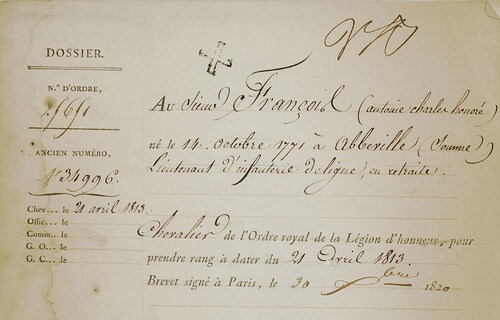 DOSSIER.
N.º D'ORDRE,
ANCIEN NUMÉRO,
N.º 34996.
Chev... le 21 avril 1813.
Offic... le
Comm... le
G. O... le
G. C... le
Au Sieur François (antoine charles honoré)
né le 14 Octobre 1771 à Abbeville (Somme)
Lieutenant d'infanterie de ligne, en retraite.
Chevalier de l'Ordre royal de la Légion d'honneur, pour
prendre rang à dater du 21 Avril 1813.
Brevet signé à Paris, le 30 bre 1820